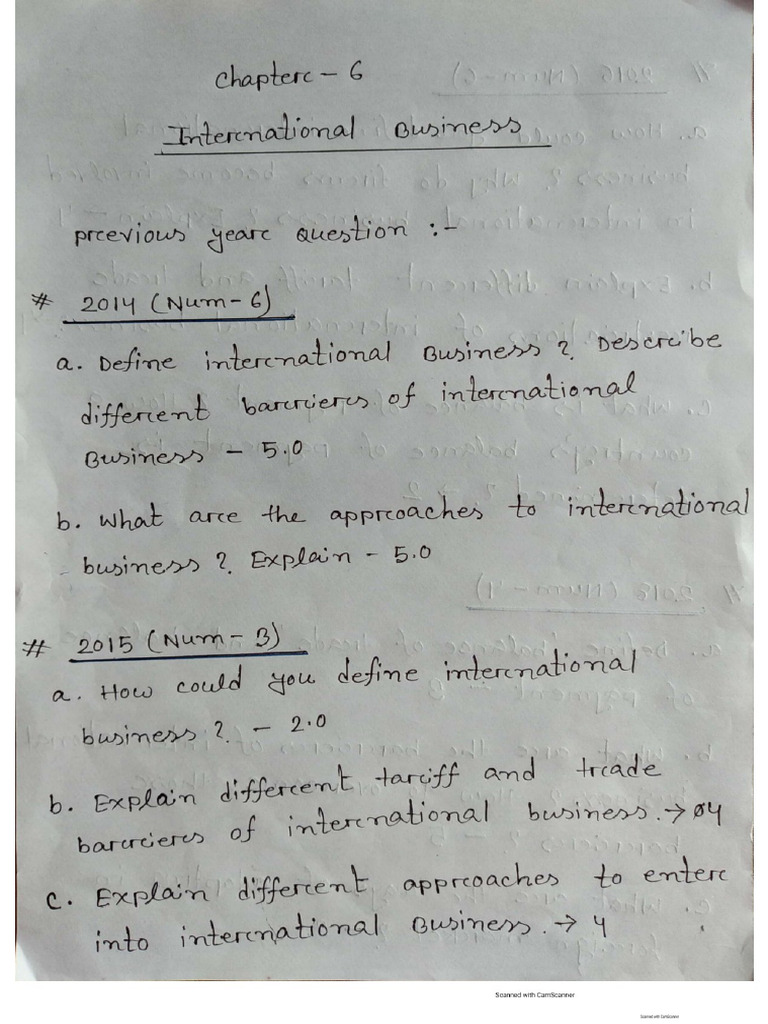 Chapter - 6
International Business
previous year question :-
# 2014 (Num-6)
a. Define international Business ? Describe
different barriers of international
Business - 5.0
b. What are the approaches to international
business ? Explain - 5.0
# 2015 (Num-3)
a. How could you define international
business ? - 2.0
b. Explain different tariff and trade
barriers of international business. → 04
c. Explain different approaches to enter
into international Business. → 4
Scanned with CamScanner
Scanned with CamScanner